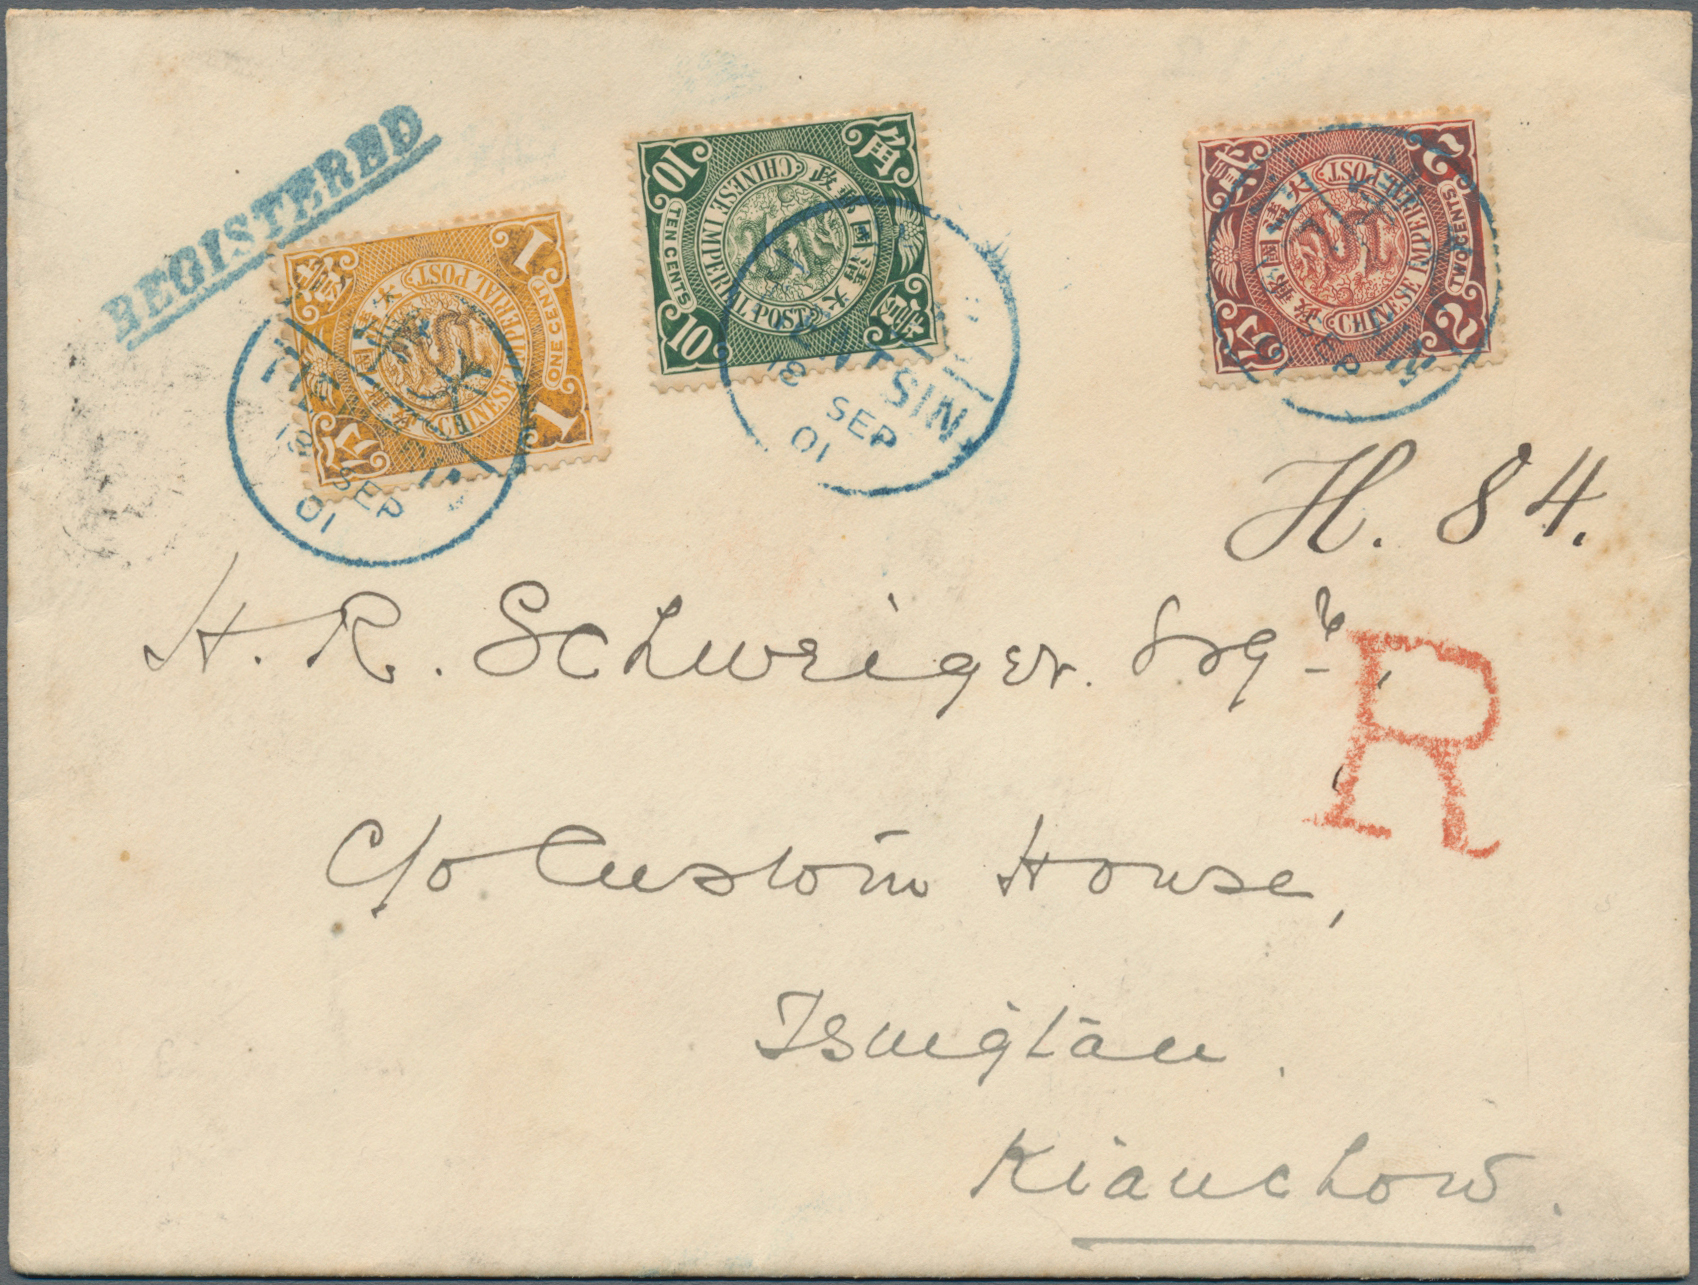 REGISTERED
1
大清國郵政
CHINESE IMPERIAL POST
ONE CENT
1
10
大清國郵政
CHINESE IMPERIAL POST
TEN CENTS
10
2
大清國郵政
CHINESE IMPERIAL POST
TWO CENTS
2
TIENTSIN
SEP
01
TIENTSIN
SEP
01
SEP
H. 84.
H. R. Schweiger. Esqre,
R
C/o Custom House,
Tsingtau.
Kiauchow.